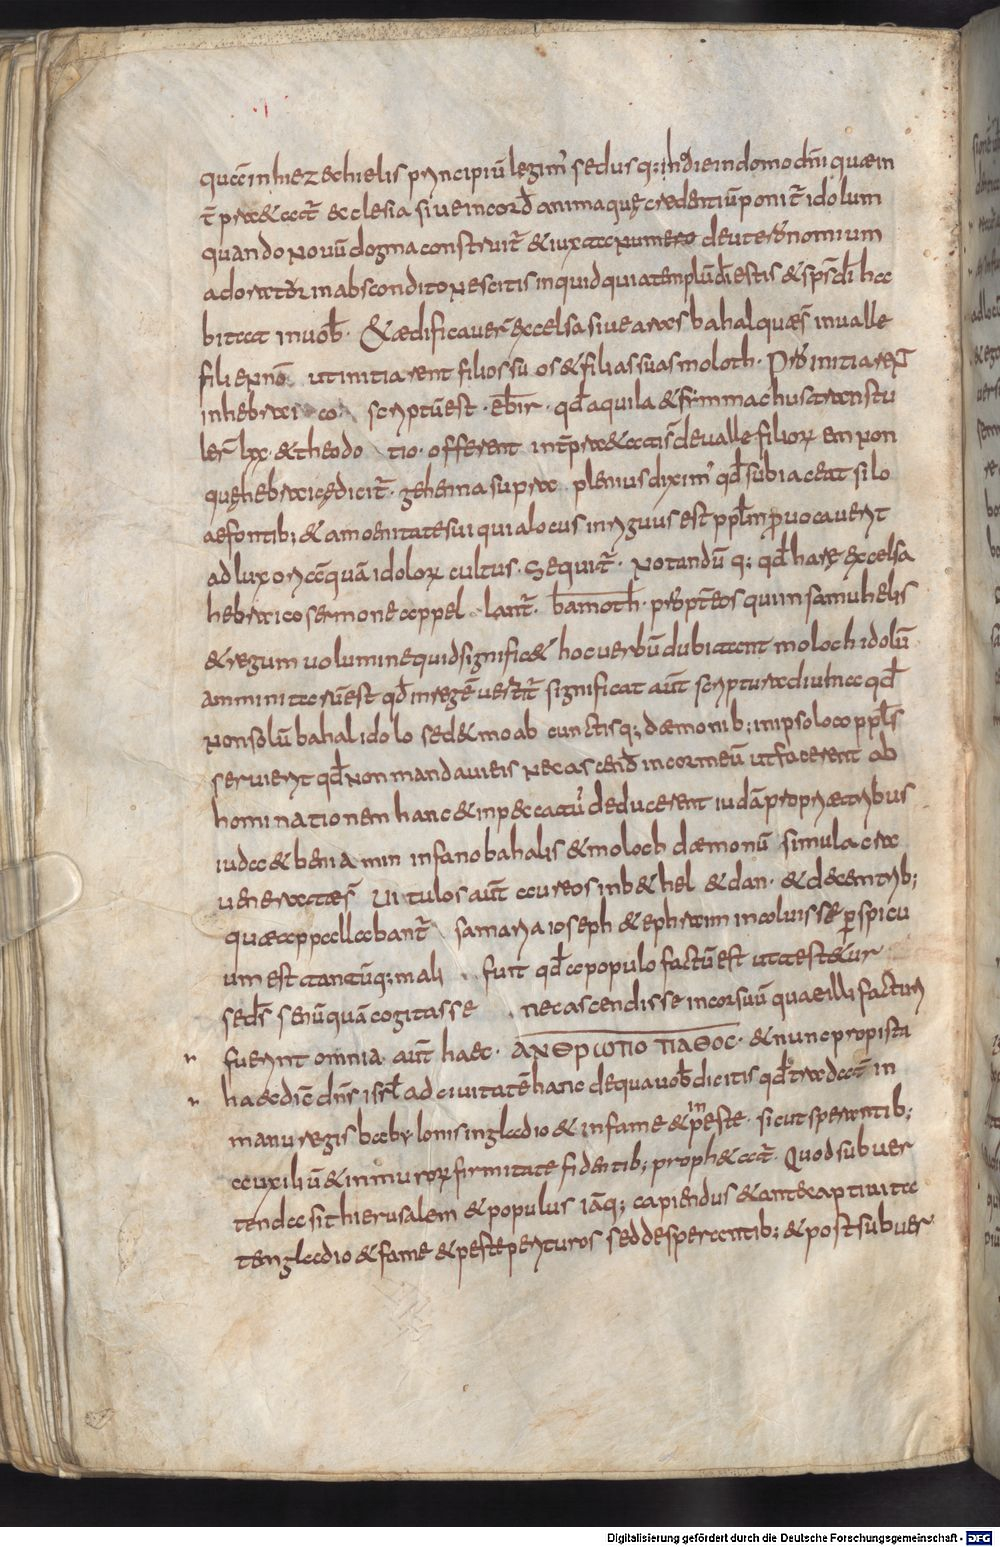 quae in hiezechielis principiū legim' sed usq; hodie in domo dn̄i quae in
t̄praetat̄ ecclesia siue in cord̄ anima quę credentiū ponit̄ idolum
quando nouū dogma construit̄ & iuxta numero deuteronomium
adorat̄ in abscondito nescitis inquid quia templū dī estis & sp̄s dī ha
bitat in uob̄. & aedificauer̄ excelsa siue aras bahal quae s̄ in ualle
fili ennō ut initiarent filios suos & filias suas moloth. Pro initiarent
in hebraico scriptū est. ebir. qd̄ aquila & simmachus transtu
ler̄ lxx. & theodotio. offerent int̄praetatīs de ualle filiorꝝ ennon
quę hebraicę dicit̄. gehenna supra plenius diximꝰ qd̄ subiaceat silo
ae fontib; & amoenitate sui quia locus inriguus est ppl̄m prouocauerit
ad luxoriā quā idolorꝝ cultus. Sequit̄. Notandū q; qd̄ harę excelsa
hebraico sermone appellant̄. bamoth. propt̄ eos qui in samuhelis
& regum uolumine quid significet hoc uerbū dubitant moloch idolū
amminitarū est qd̄ in regē uertit̄ significat aūt scriptura diuina qd̄
non solū bahal idolo sed & moab cunctisq; daemonib; in ipso loco ppl̄s
seruierit qd̄ non mandaui eis nec ascend̄ in cor meū ut facerent ab
hominationem hanc & in peccatū deducerent iudā propriae tribus
iuda & beniamin in fano bahalis & moloch daemonū simulacra
uenerataes̄ uitulos aūt aureos in bethel & dan. & decem trib;
quae appellabant̄ samaria ioseph & ephraim incoluisse perspicu
um est tantūq; mali fuit qd̄ a populo factū est ut testetur
se ds̄ se nūquā cogitasse nec ascendisse in cor suū quae illi facturi
fuerint omnia aūt haec. ΑΝΘΡωΠΟ ΠΑΘΟC. & nunc propt̄ ista
haec dic̄ dn̄s isrl̄ ad ciuitatē hanc de qua uob̄ dicitis qd̄ tradat̄ in
manu regis babylonis in gladio & in fame & in peste. sicut sperantib;
auxiliū & in murorꝝ firmitate fidentib; prophetat̄. Quod subuer
tenda sit hierusalem & populus iāq; capiendus & ante captiuita
tem gladio & fame & peste periturus sed desperantib; & post subuer